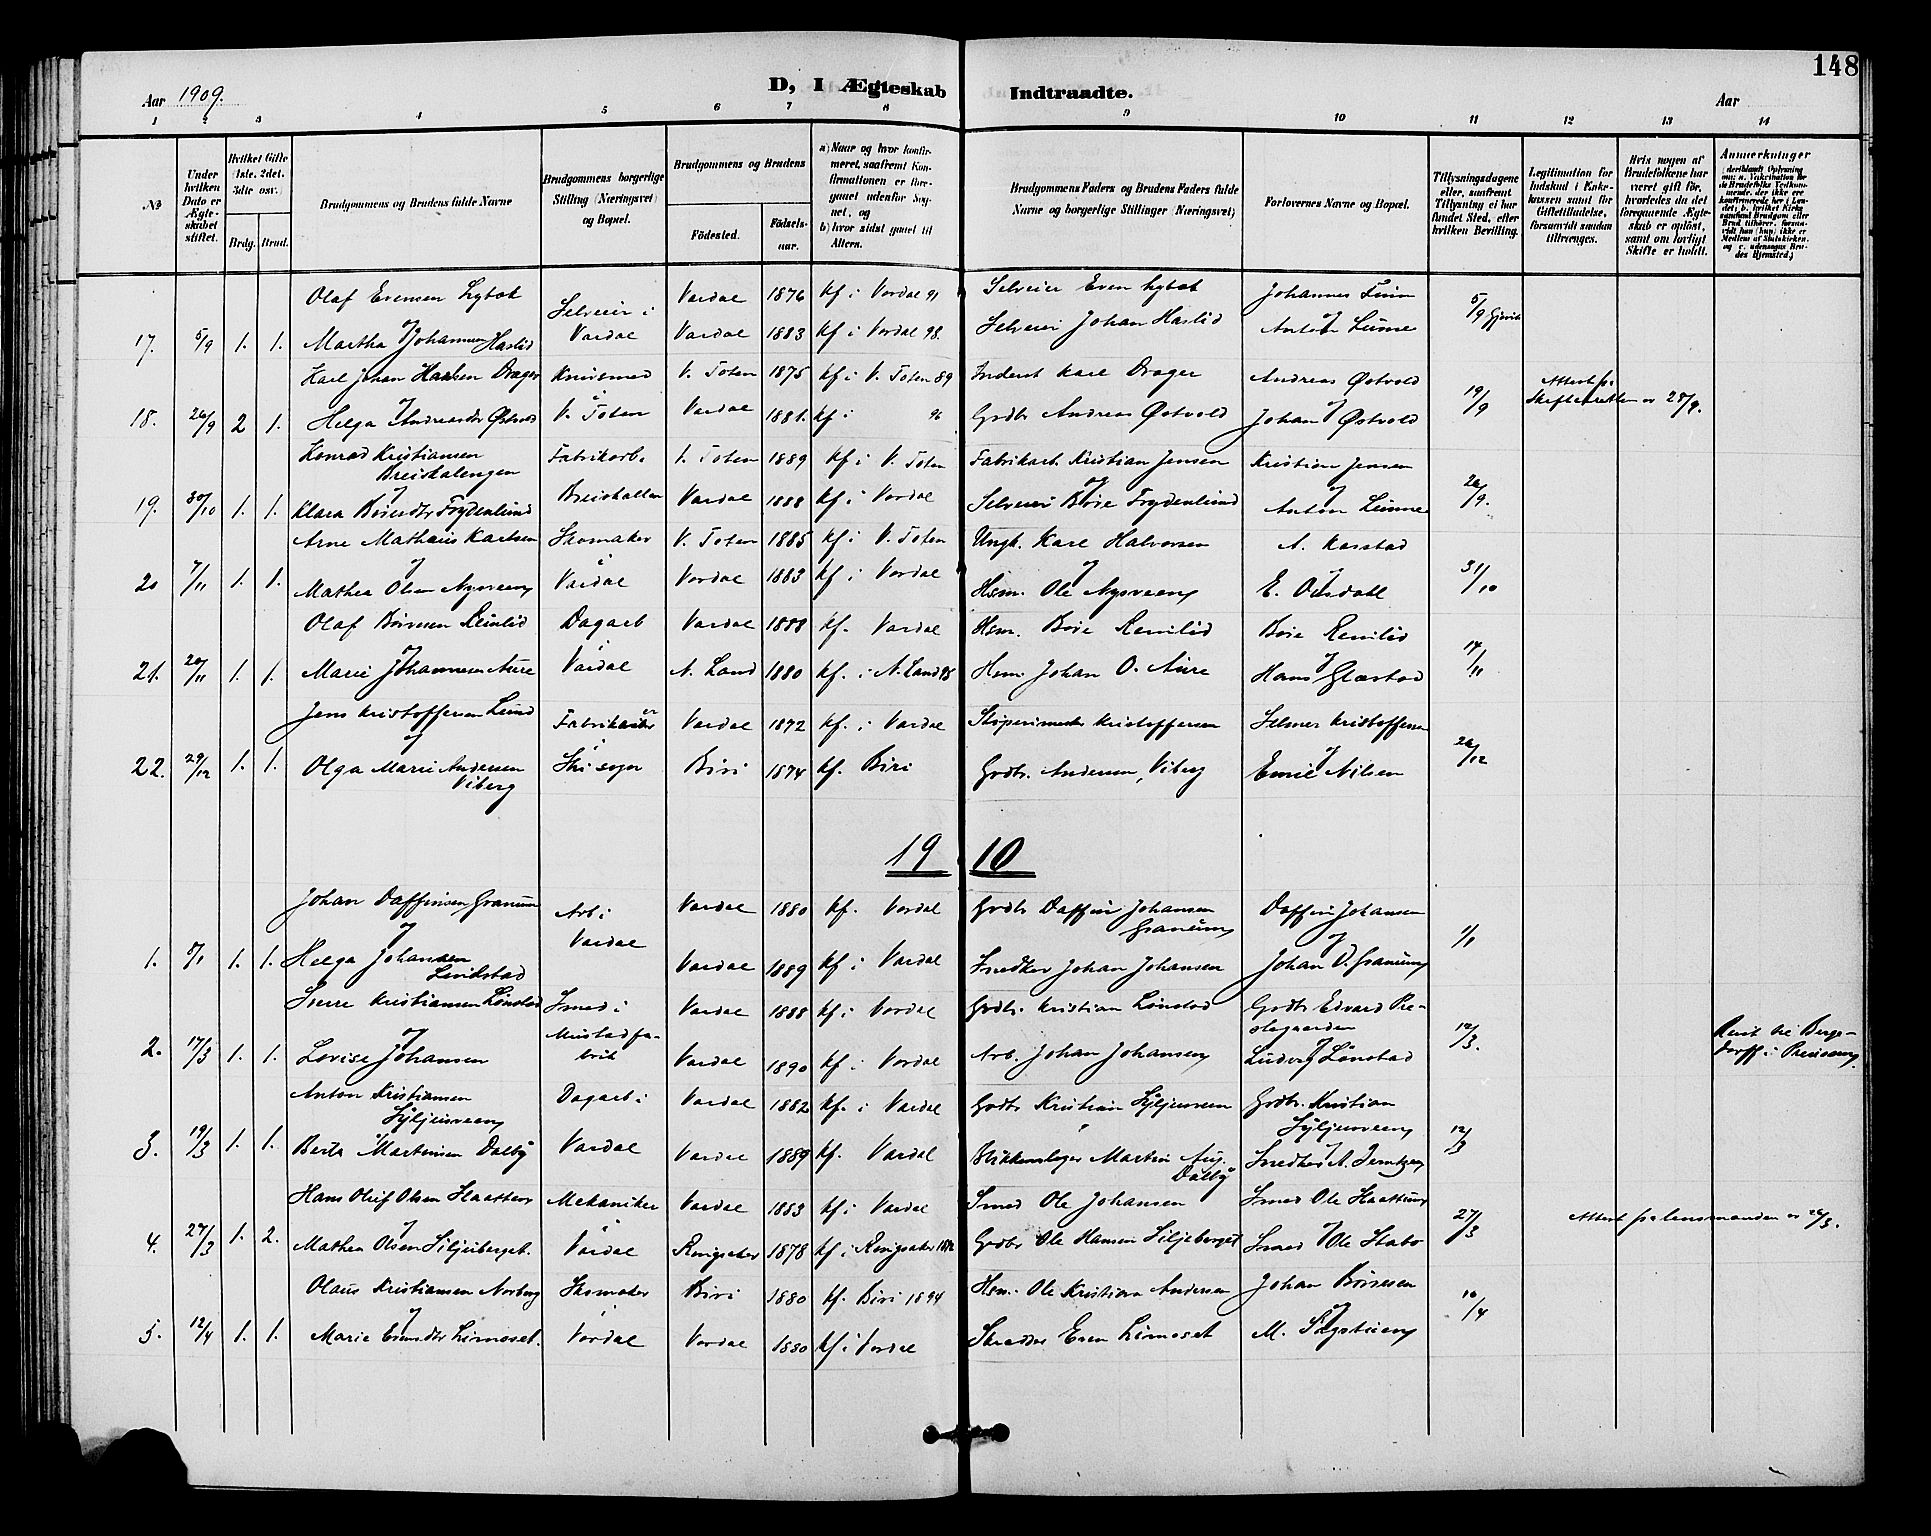 148
D, I Ægteskab Indtraadte.
Aar 1909. Aar
1 2 3 4 5 6 7 8 9 10 11 12 13 14
№
Under hvilken Dato er Ægteskabet stiftet.
Hvilket Gifte (1ste, 2det, 3die osv.)
Brdg. Brud.
Brudgommens og Brudens fulde Navne
Brudgommens borgerlige Stilling (Næringsvei) og Bopæl.
Brudgommens og Brudens
Födested. Födselsaar.
a) Naar og hvor konfirmeret, saafremt Konfirmationen er foregaaet udenfor Sognet, og
b) hvor sidst gaaet til Alters.
Brudgommens Faders og Brudens Faders fulde Navne og borgerlige Stillinger (Næringsvei)
Forlovernes Navne og Bopæl.
Tillysningsdagene eller, saafremt Tillysning ei har fundet Sted, efter hvilken Bevilling.
Legitimation for Indskud i Enkekassen samt for Giftetilladelse, forsaavidt saadan tiltrænges.
Hvis nogen af Brudefolkene har været gift för, hvorledes da det foregaaende Ægteskab er oplöst, samt om lovligt Skifte er holdt.
Anmærkninger
Olaf Evensen Lybæk Selveier i Vardal 1876 kf i Vardal 91 Selveier Even Lybæk Johannes
17. 5/9 1. 1. Martha Johannesen Haslid Vardal Vardal 1883 kf i Vardal 98. Selveier Johan Haslid Anton Lunne 5/9 Gjøvik
Karl Johan Hansen Drager V. Toten 1875 kf i V. Toten 89 Karl Drager Andreas Østvold
18. 26/9 2 1. Helga Andreasdtr Østvold V. Toten Vardal 1881. kf i 96 Grdbr Andreas Østvold Johan Østvold 19/9 Attest fr. Skifteretten av 25/9.
Konrad Kristiansen Breiskalengen Fabrikarb. V. Toten 1889 kf i V. Toten Fabrikarb. Kristian Jensen Kristian Jensen
19. 30/10 1. 1. Klara Børesdtr Frydenlund Breiskallen Vardal 1888 kf i Vardal Selveier Børe Frydenlund Anton Lunne 26/9.
Arne Mathæus Karlsen Skomaker V. Toten 1885 kf i V. Toten Ungk. Karl Halvorsen A. Karstad
20 7/11 1. 1. Mathea Olsen Nysveen Vardal Vardal 1883 kf i Vardal Hsm. Ole Nysveen E. Ousdall 31/10
Olaf Børesen Remlid Dagarb Vardal 1888 kf. Vardal Hsm. Børe Remlid Børe Remlid
21. 20/11 1. 1. Marie Johannesen Aure Vardal N. Land 1880 kf. i N. Land 95 Hsm. Johan O. Aure Hans Glæstad 14/11
Jens Kristoffersen Lund Fabrikarb Vardal 1872 kf. i Vardal Kristoffersen Selmer Kristoffersen
22. 29/12 1. 1. Olga Marie Andersen Viberg Biri 1874 kf. Biri Grdbr. Andersen, Viberg Emil Nilsen 26/12
19 10
Johan Daffinsen Granum Arb i Vardal 1880 kf. Vardal Grdbr Daffin Johansen Granum Daffin Johansen
1. 8/1 1. 1. Helga Johansen Lindstad Vardal Vardal 1889 kf i Vardal Snedker Johan Johansen Johan D. Granum 1/1
Sverre Kristiansen Lønstad Smed i Vardal 1888 kf i Vardal Grdbr. Kristian Lønstad Grdbr Edvard Prestegaarden
2. 17/3 1. 1. Lovise Johansen Mustadfabrik Vardal 1890 kf i Vardal Arb. Johan Johansen Ludvig Lønstad 12/3. Reist til Bergedorff i Preussen.
Anton Kristiansen Syljusveen Dagarb i Vardal 1882 kf. i Vardal Grdbr Kristian Syljusveen Grdbr. Kristian Syljusveen
3. 19/3 1. 1. Berte Martinsen Dalby Vardal Vardal 1889 kf. Vardal Blikkenslager Martin Aug. Dalby Snedker A. 12/3
Hans Oluf Olsen Haattun Mekaniker Vardal 1883 kf i Vardal Smed Ole Johansen Smed Ole Haattun
4. 27/3 1. 2. Mathea Olsen Siljeberget. Vardal Ringsaker 1878 kf i Ringsaker Grdbr Ole Hansen Siljeberget Smed Ole Stabo 27/3 Attest fra lensmanden av 26/3.
Olaus Kristiansen Norberg Skomaker Biri 1880 kf. Biri 1894 Hsm. Ole Kristian Andersen Johan Børresen
5. 12/4 1. 1. Marie Evensdtr Limoset. Vardal Vardal 1880 kf i Vardal Skredder Even Limoset M. Skystuen 10/4